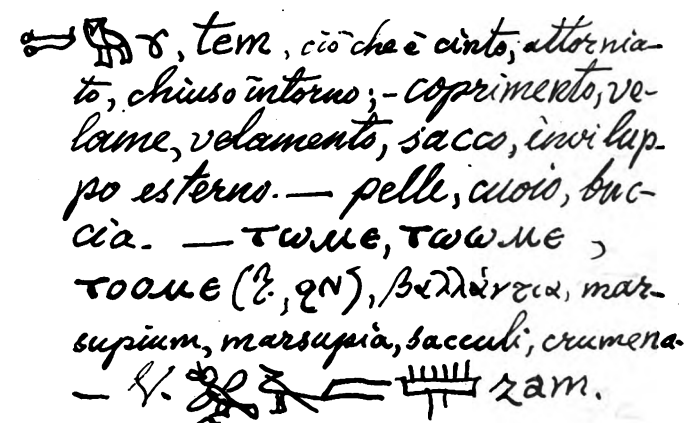 , tem, ciò che è cinto, attornia-
to, chiuso intorno; - coprimento, ve-
lame, velamento, sacco, invilup-
po esterno. — pelle, cuoio, buc-
cia. — ⲧⲱⲙⲉ, ⲧⲱⲱⲙⲉ,
ⲧⲟⲟⲙⲉ (, ⲟⲛ), βαλλάντια, mar-
supium, marsupia, sacculi, crumena.
— V. zam.